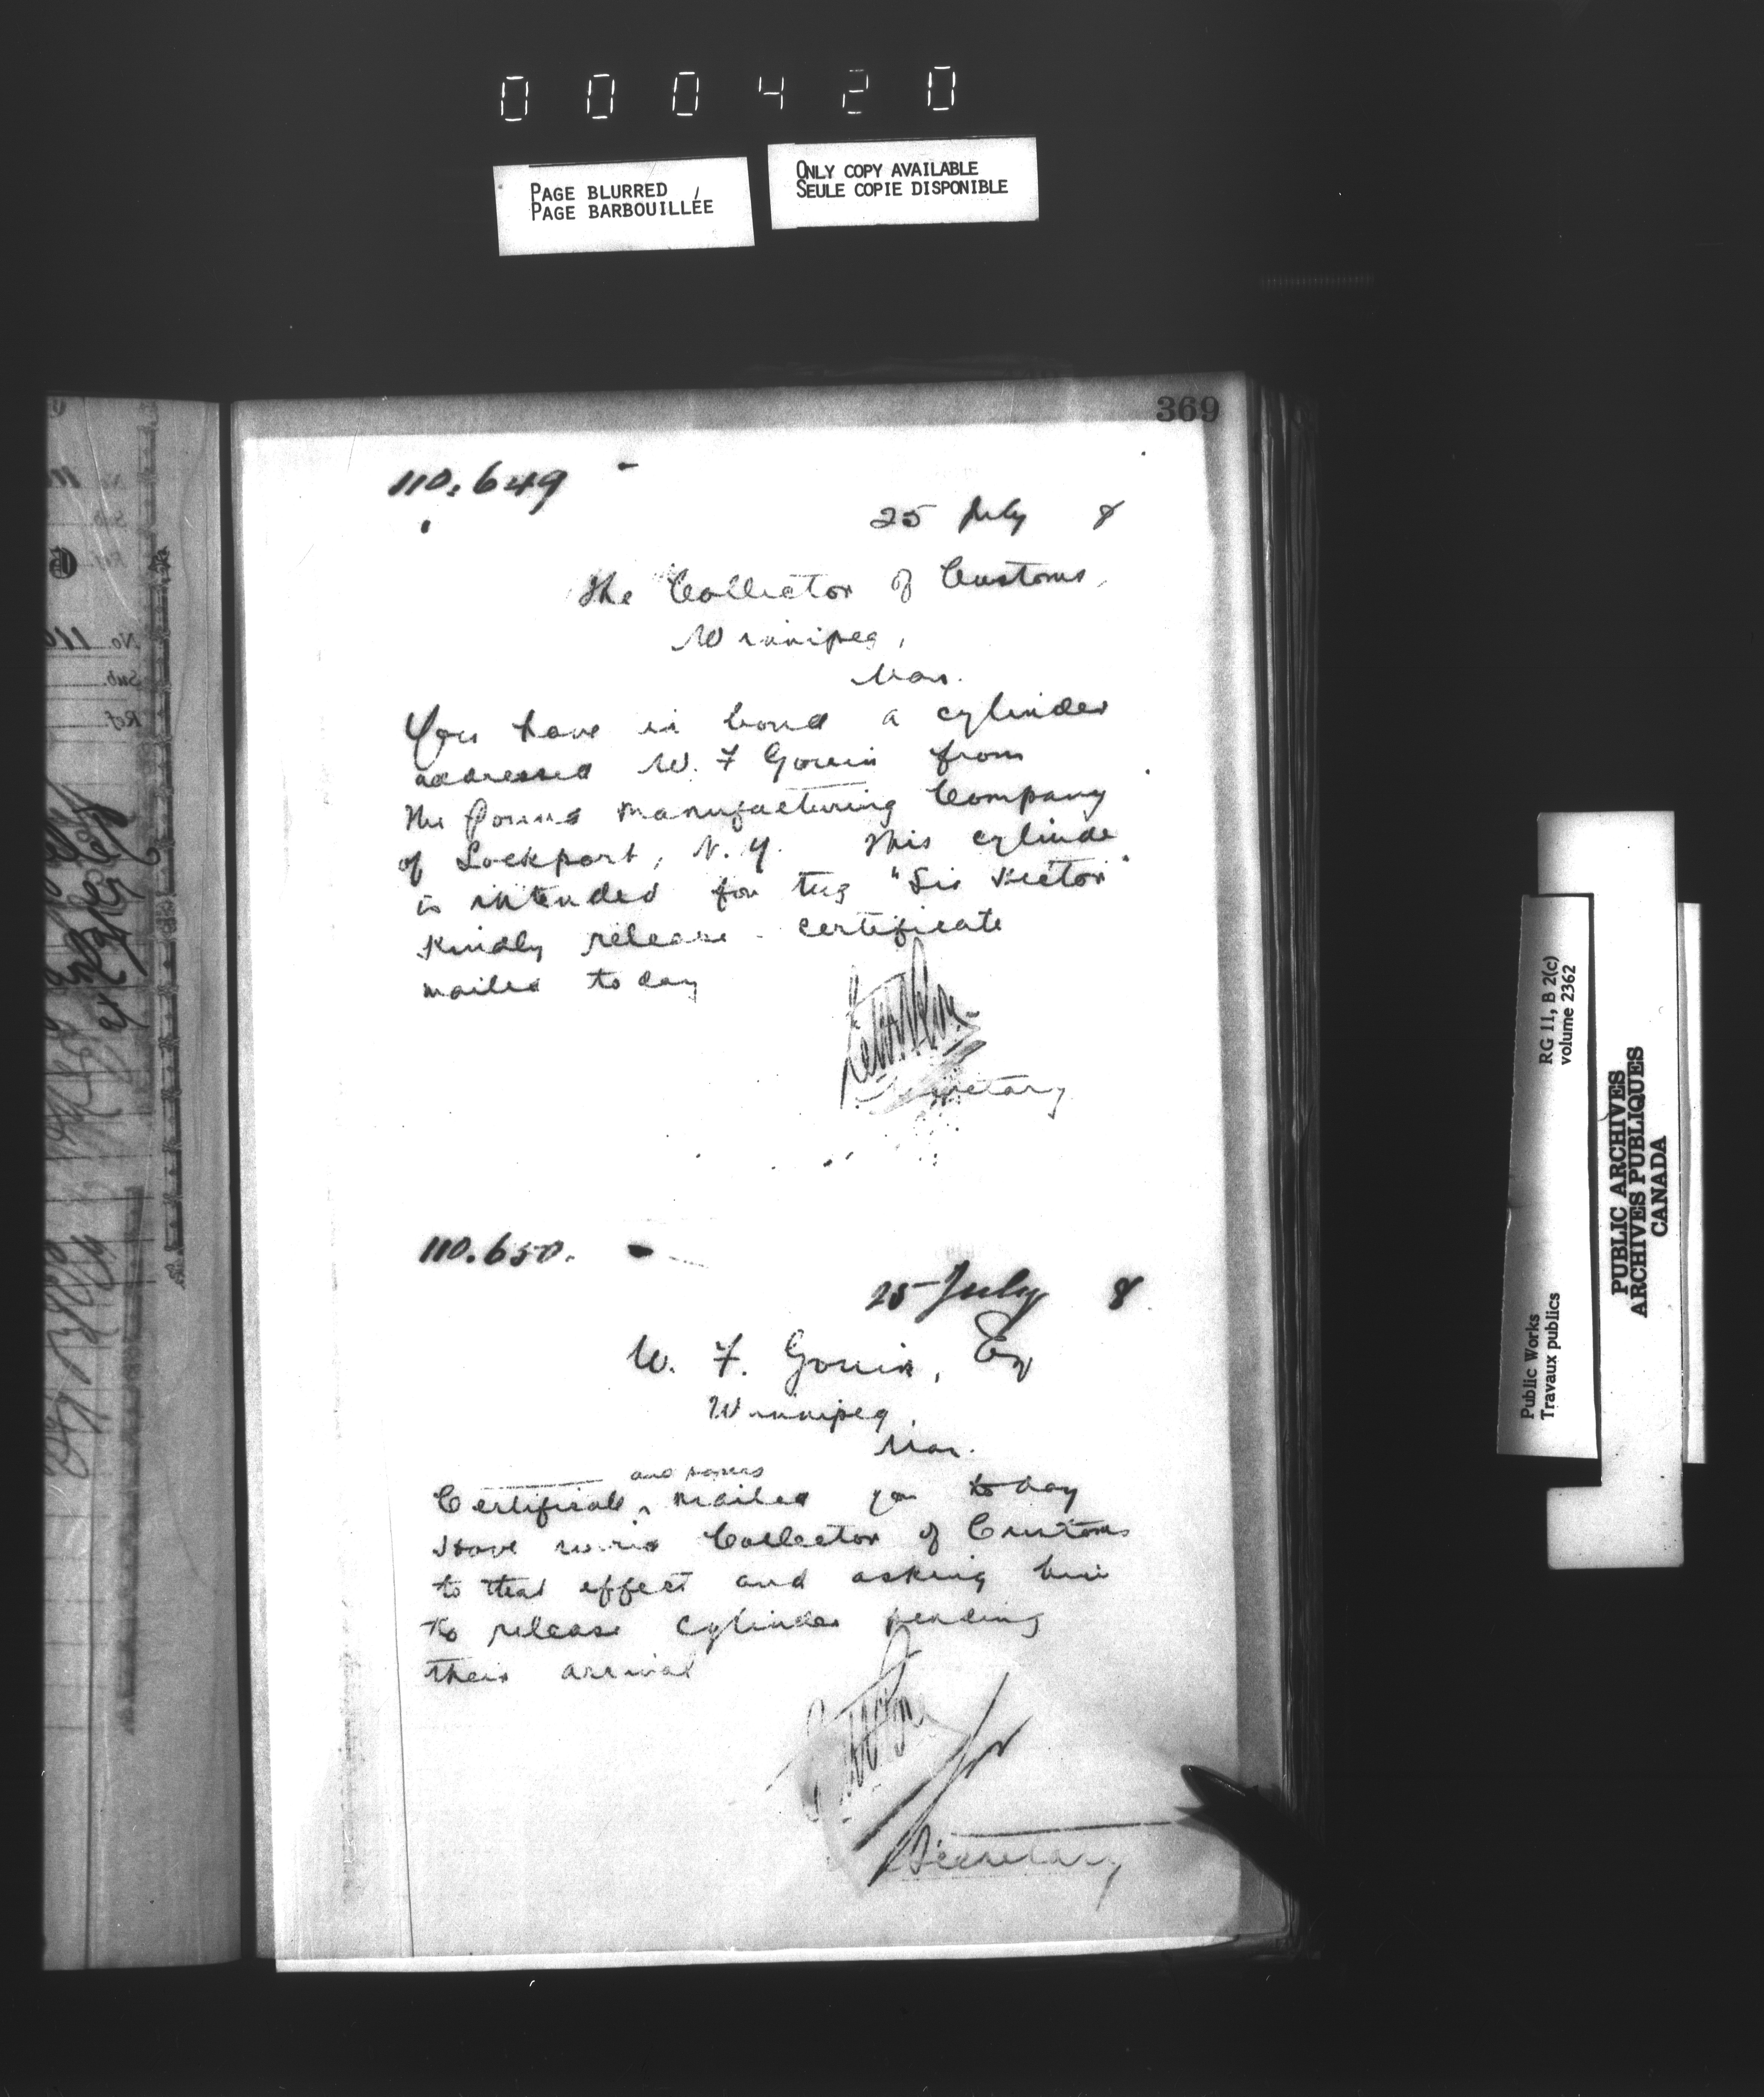 000420
PAGE BLURRED
PAGE BARBOUILLÉE
ONLY COPY AVAILABLE
SEULE COPIE DISPONIBLE
369
110.649
25 July 8
The Collector of Customs,
Winnipeg,
Man.
You have in bond a cylinder
addressed W. F Gouin from
the manufacturing Company
of Lockport, N.Y. This cylinde
is intended for tug "Sir Hector"
Kindly release - certificate
mailed to day
Secretary
110.650.
25 July 8
W. F. Gouin, Esq
Winnipeg,
Man.
and papers
Certificate mailed you to day
Have wired Collector of Customs
to that effect and asking him
to release cylinder pending
their arrival
Secretary
No. 110
Sub.
Ref.
RG 11, B 2(c)
volume 2362
Public Works
Travaux publics
PUBLIC ARCHIVES
ARCHIVES PUBLIQUES
CANADA